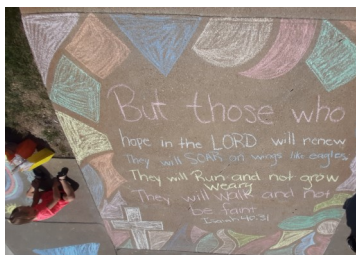 But those who
hope in the LORD will renew
They will SOAR on wings like eagles
They will Run and not grow
weary
They will walk and not
be faint
Isaiah 40:31